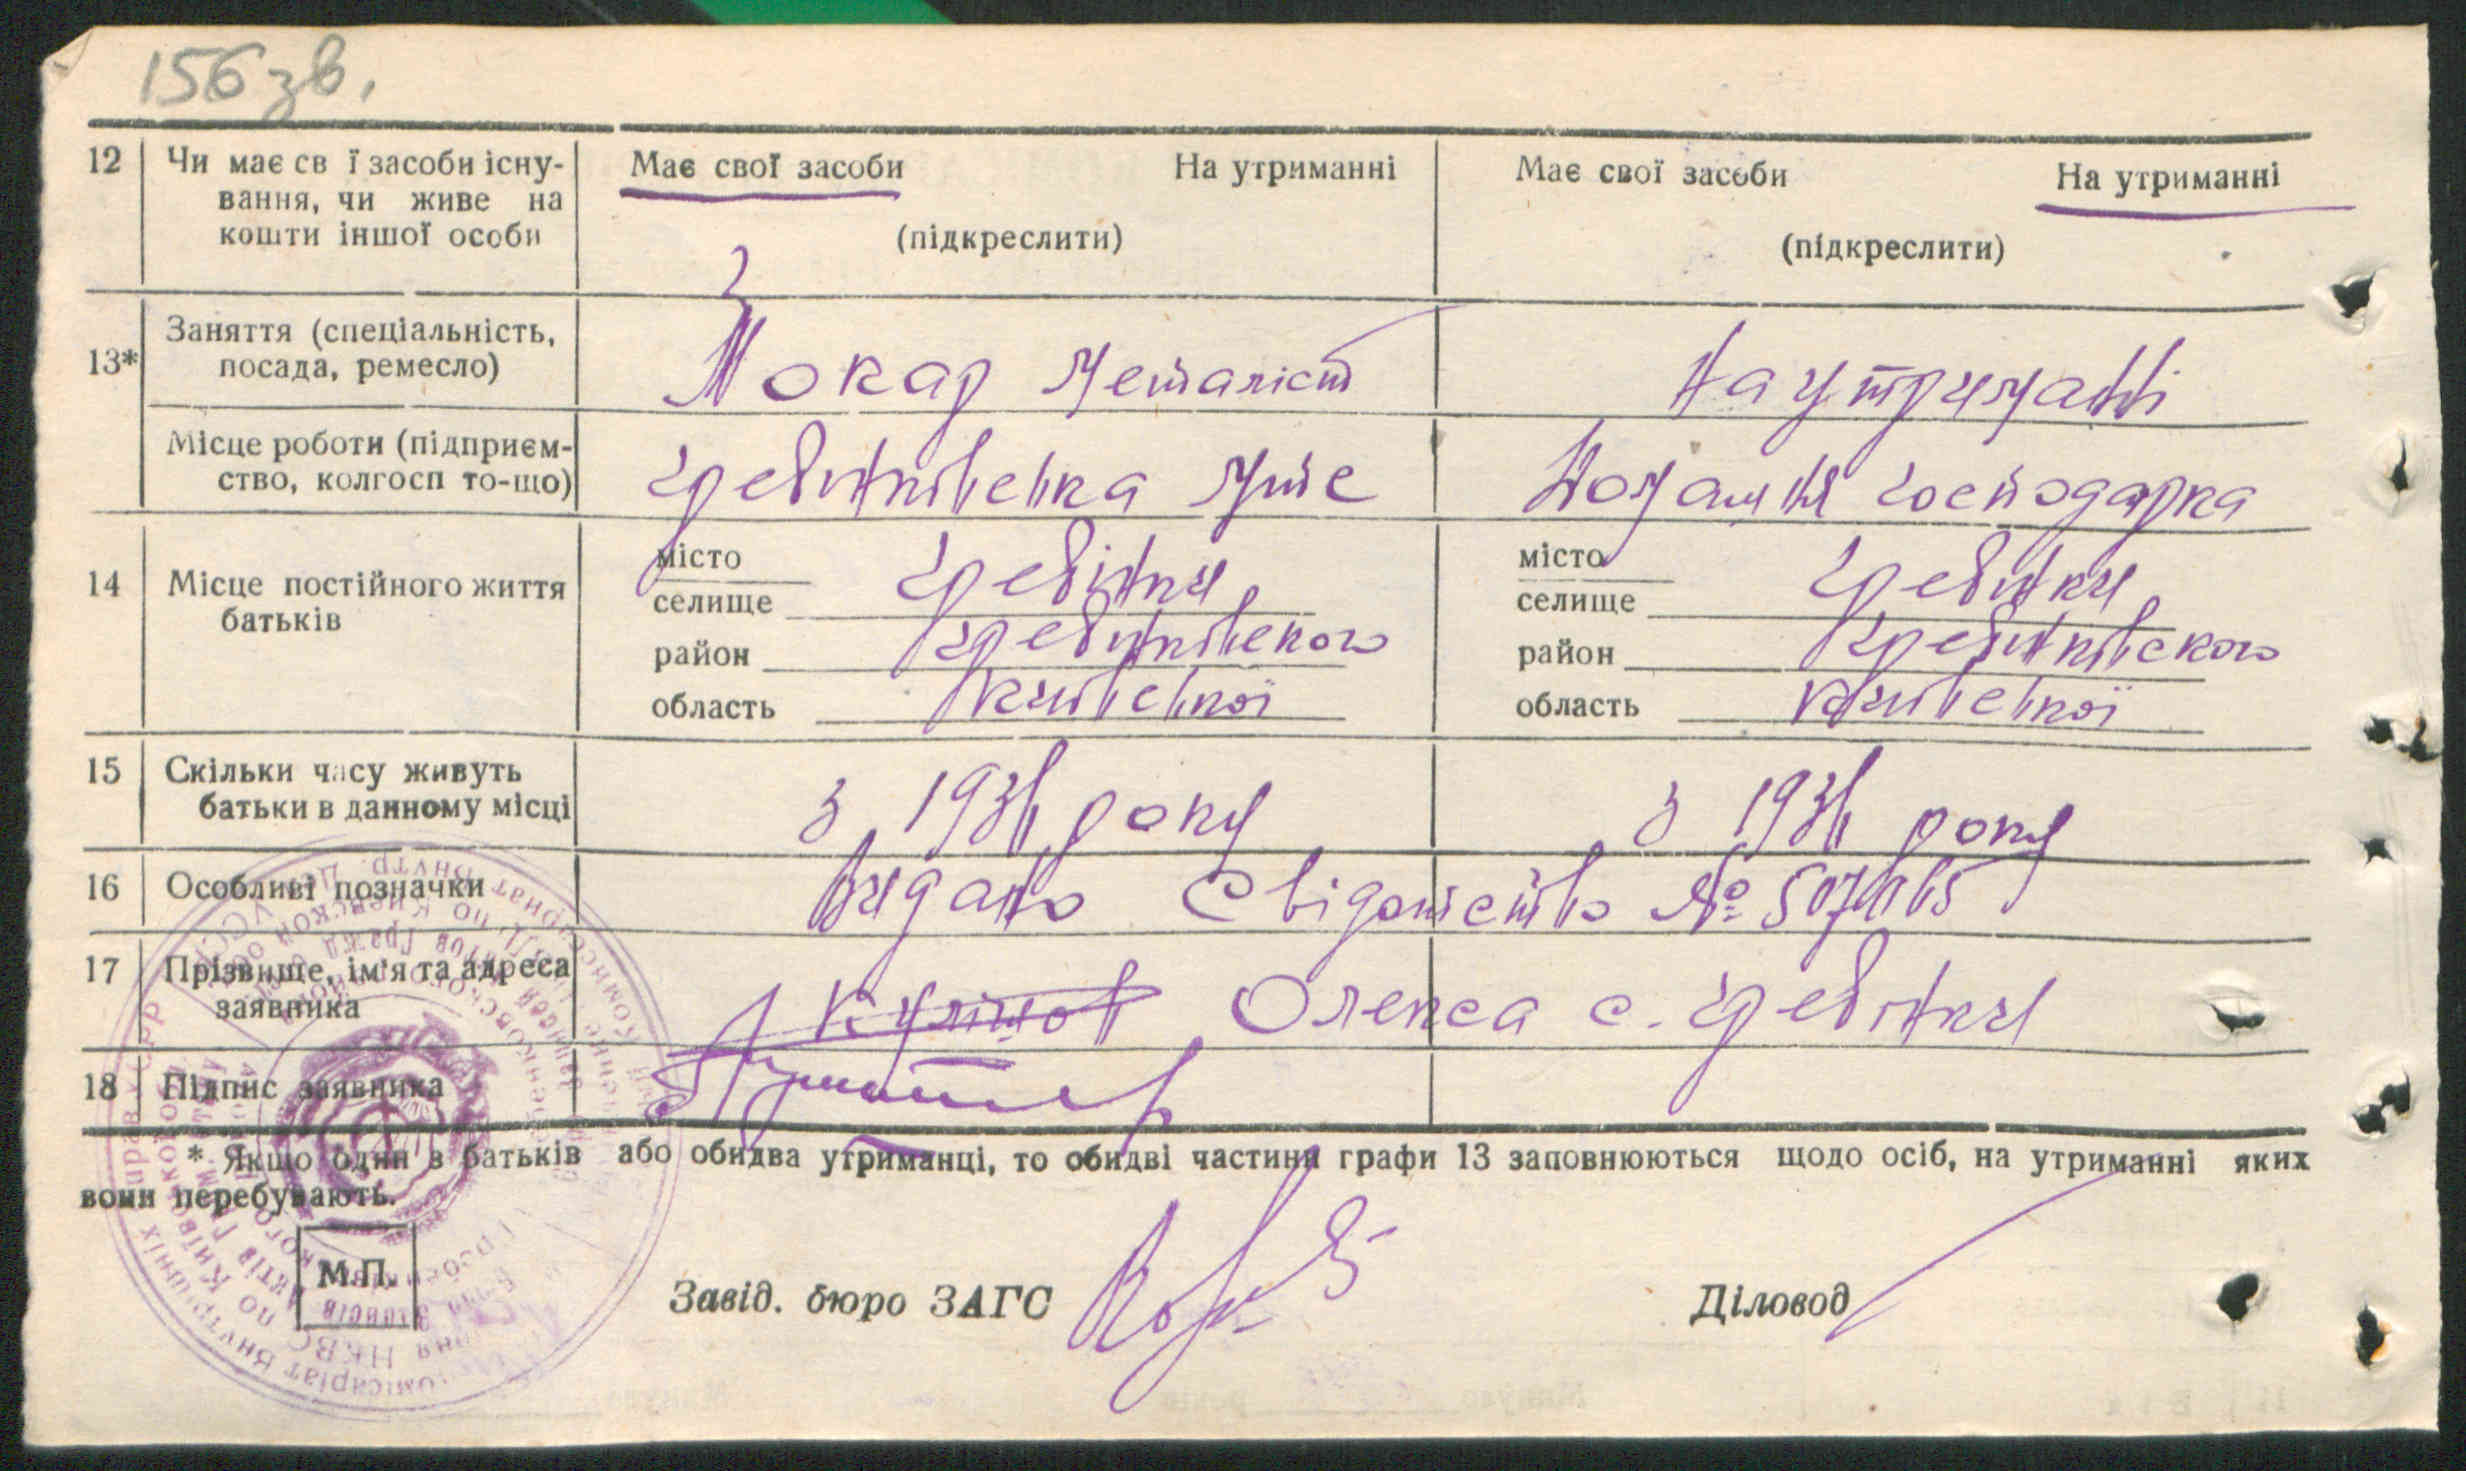 156 зв.
12 Чи має св ї засоби існу- Має свої засоби На утриманні Має свої засоби На утриманні
вання, чи живе на
кошти іншої особи (підкреслити) (підкреслити)
Заняття (спеціальність,
13* посада, ремесло) Токар металіст На утриманні
Місце роботи (підприєм-
ство, колгосп то-що) Гребінківська мтс Домашня господарка
14 Місце постійного життя місто Гребінки місто Гребінки
батьків селище селище
район Гребінківского район Гребінківского
область Київської область Київської
15 Скільки часу живуть
батьки в данному місці з року з року
16 Особливі позначки Видано Свідоцтво №
17 Прізвище, ім'я та адреса
заявника Олекса с. Гребінки
18 Підпис заявника
* Якщо один з батьків або обидва утриманці, то обидві частини графи 13 заповнюються щодо осіб, на утриманні яких
вони перебувають.
М.П.
Завід. бюро ЗАГС Діловод